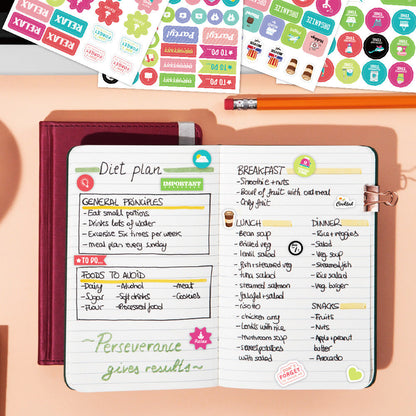 RELAX
RELAX
RELAX
RELAX
IMPORTANT
Party!
Party!
IMPORTANT
ORGANIZE
Diet plan
IMPORTANT
GENERAL PRINCIPLES
- Eat small portions
- Drinks lots of water
- Excersise 5x times per week
- meal plan every sunday
TO DO...
FOODS TO AVOID
- Dairy - Alcohol - meat
- Sugar - Soft drinks - Cookies
- Flour - Processed food
~Perseverance
gives results~
Relax
BREAKFAST
- Smoothie + nuts
- Bowl of fruit with oatmeal
- Only fruit
LUNCH
- Bean soup
- Baked veg
- lentil salad
- fish + steamed veg
- tuna salad
- steamed salmon
- falafel + salad
- risotto
- chicken curry
- Lentils with rice
- mushroom soup
- sweet potatoes
with salad
DINNER
- Rice + veggies
- Salad
- Veg soup
- Steamed fish
- Rice salad
- Veg burger
SNACKS
- Fruits
- Nuts
- Apple + peanut
butter
- Avocado
DON'T
FORGET